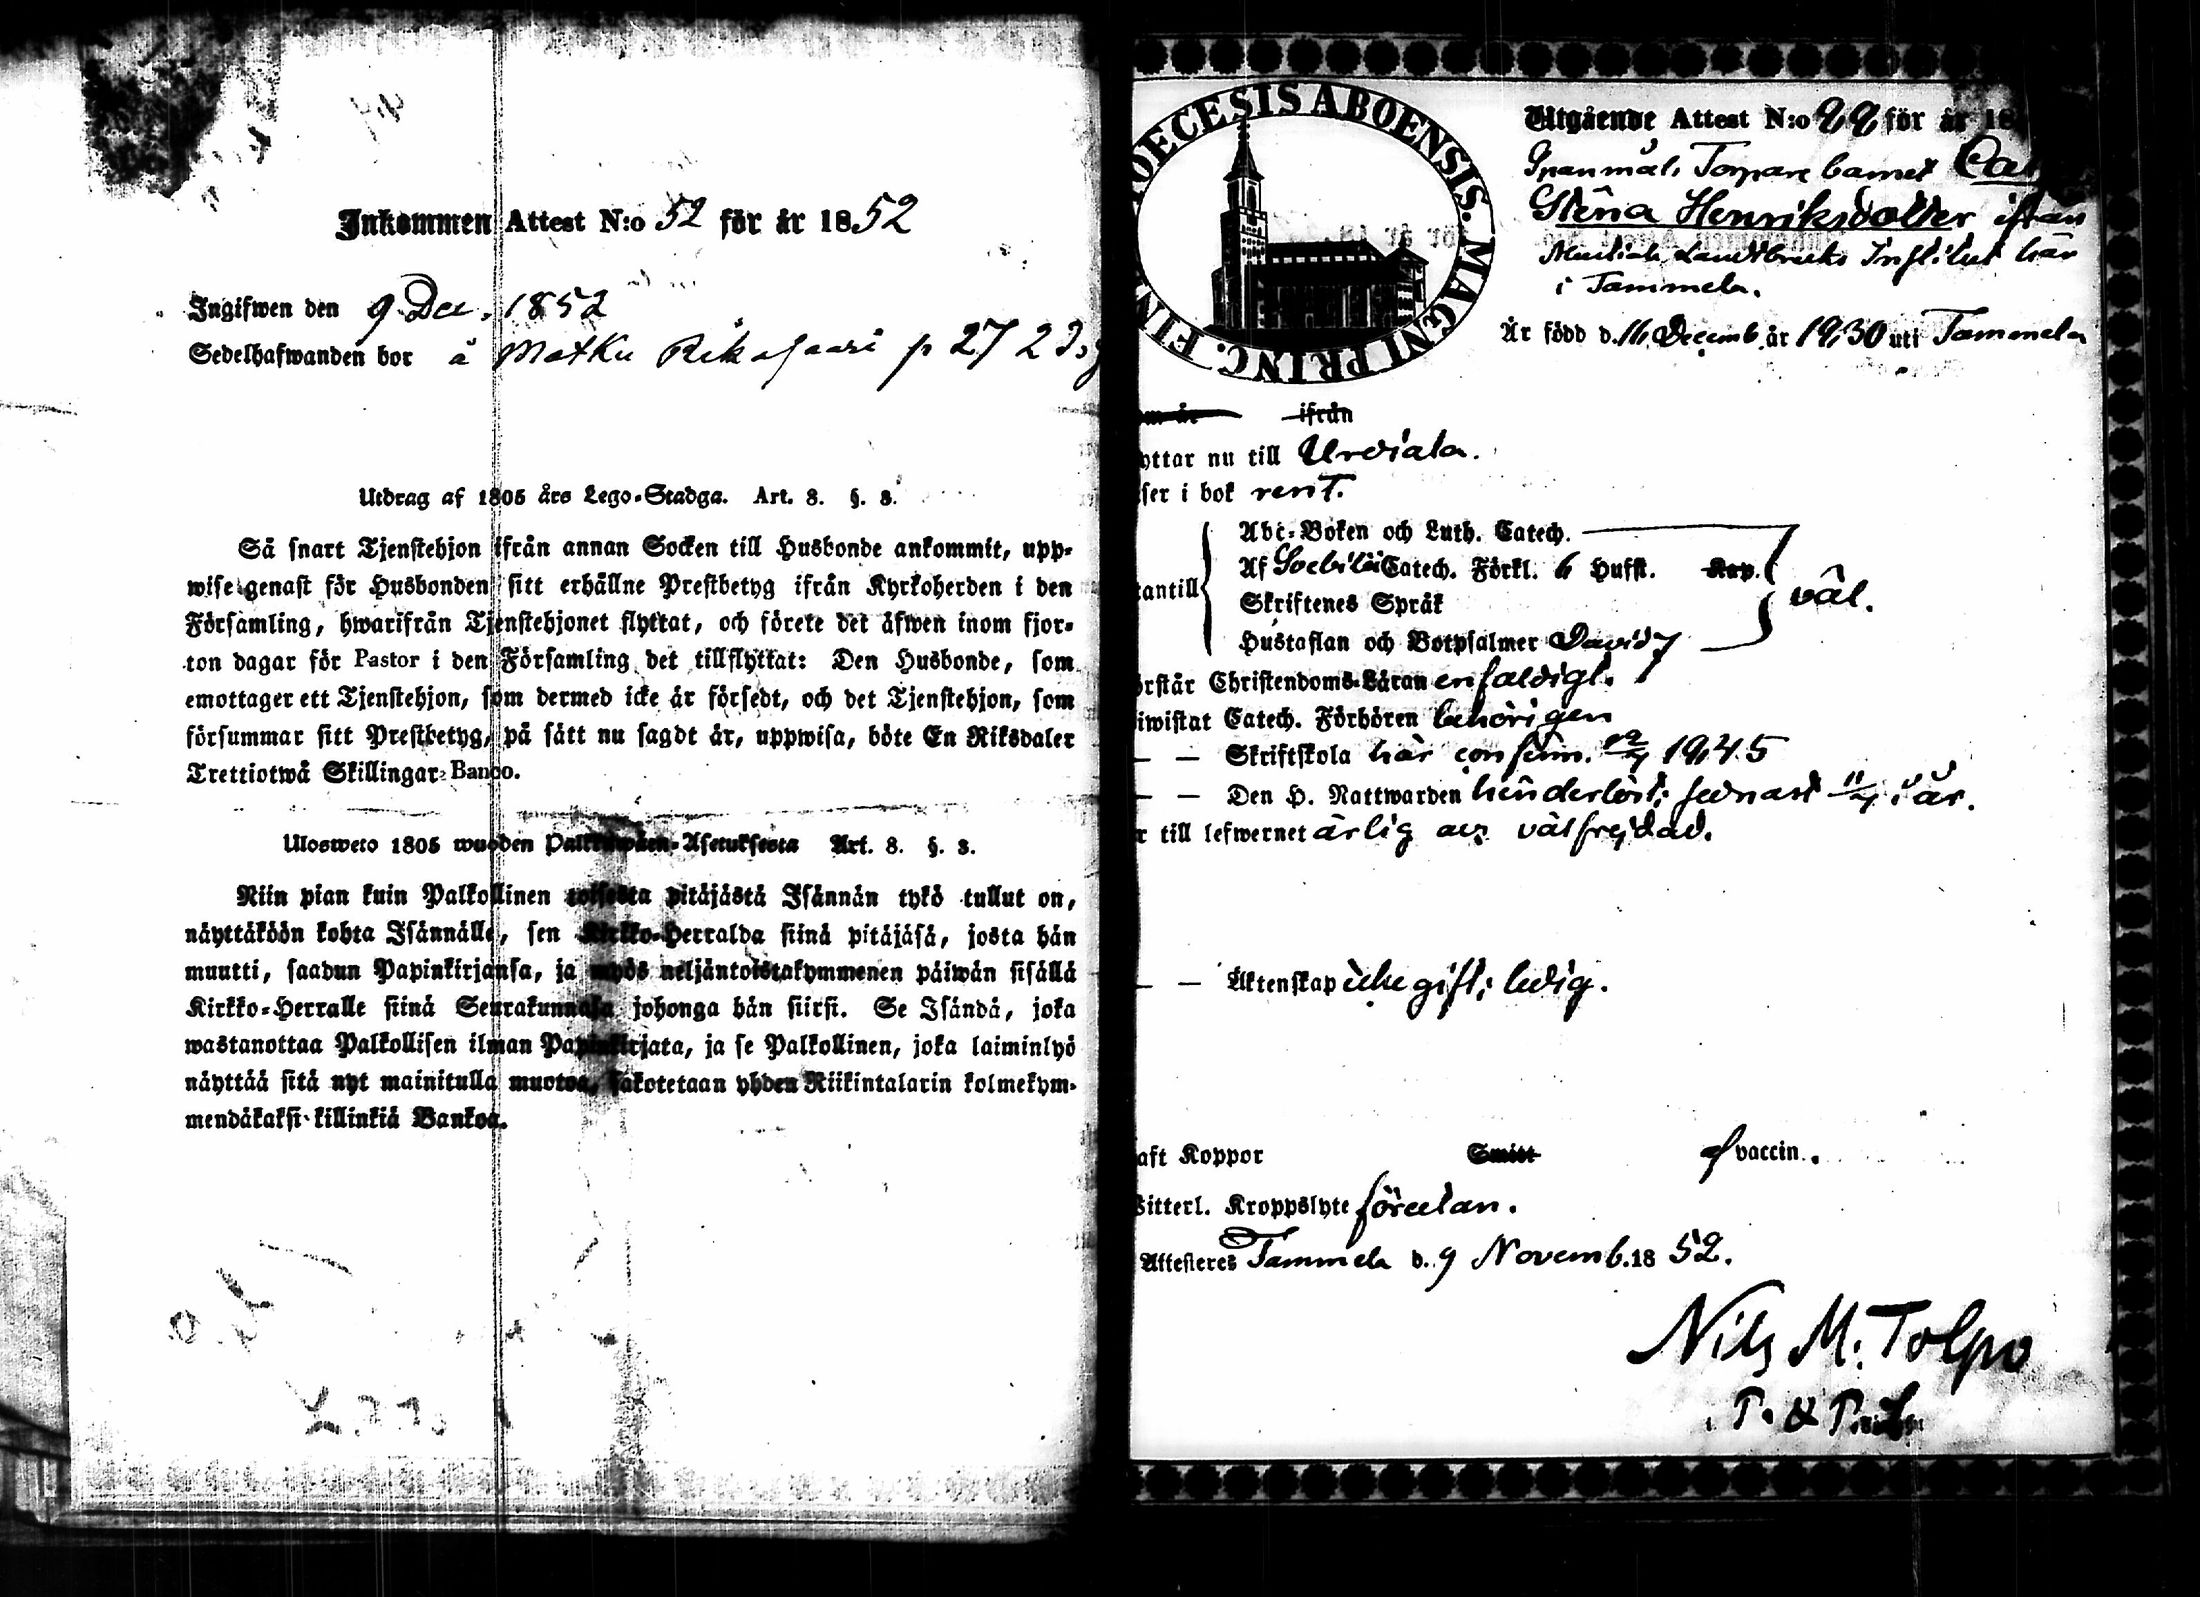 Inkommen Attest N:o 52 för år 1852
Ingifwen den 9 Dec. 1852
Sedelhafwanden bor å Matku p 272
Utdrag af 1805 års Lego-Stadga. Art. 8. §. 3.
Så snart Tjenstehjon ifrån annan Socken till Husbonde ankommit, upp-
wise genast för Husbonden sitt erhållne Prestbetyg ifrån Kyrkoherden i den
Församling, hwarifrån Tjenstehjonet flyttat, och förete det äfwen inom fjor-
ton dagar för Pastor i den Församling det tillflyttat: Den Husbonde, som
emottager ett Tjenstehjon, som dermed icke är försedt, och det Tjenstehjon, som
försummar sitt Prestbetyg, på sätt nu sagdt är, uppwisa, böte En Riksdaler
Trettiotwå Skillingar Banco.
Ulosweto 1805 wuoden Palkkawäen-Asetuksesta Art. 8. §. 3.
Niin pian kuin Palkollinen toisesta pitäjästä Isännän tykö tullut on,
näyttäköön kohta Isännälle, sen Kirkko-Herralda siinä pitäjäsä, josta hän
muutti, saadun Papinkirjansa, ja myös neljäntoistakymmenen päiwän sisällä
Kirkko-Herralle siinä Seurakunnasa johonga hän siirsi. Se Isändä, joka
wastanottaa Palkollisen ilman Papinkirjata, ja se Palkollinen, joka laiminlyö
näyttää sitä nyt mainitulla muotoa, sakotetaan yhden Riikintalarin kolmekym-
mendäkaksi killinkiä Bankoa.
DIOECESIS ABOENSIS. MAGNI PRINC. FIN
Utgående Attest N:o för år 18
Torpare barnet
Stina Henriksdotter ifrån
Mustiala Landtbruks Institut här
i Tammela.
Är född d. 16 Decemb. år 1830 uti Tammela
ifrån
yttar nu till Urdiala.
ser i bok rent.
Abc-Boken och Luth. Catech.
Af Catech. Förkl. 6 Hufst. Kap.
tantill Skriftenes Språk väl.
Hustaflan och Botpsalmer Davids
örstår Christendoms-Läran enfaldigt.
iwistat Catech. Förhören behörigen
— — Skriftskola här 1845
— — Den H. Nattwarden hinderlöst; sednast i år.
r till lefwernet ärlig och välfrejdad.
— — Äktenskap icke gift; ledig.
aft Koppor Smitt vaccin.
Witterl. Kroppslyte förutan.
Attesteres Tammela d. 9 Novemb. 1852.
Nils M. Tolpo
P. & P.